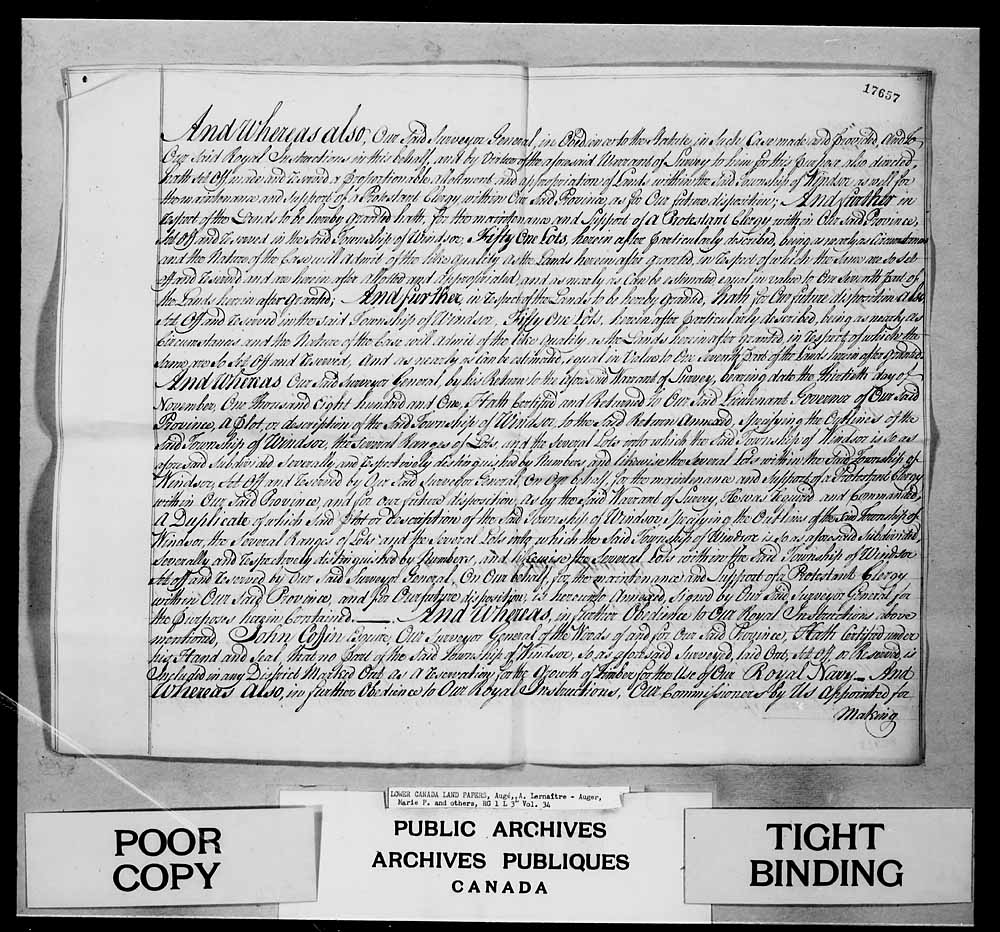 17657
And Whereas also, Our Said Surveyor General, in Obedience to the Statute, in Such Case made and provided, and to
Our Said Royal Instructions in this behalf, and by Virtue of the aforesaid Warrant of Survey to him for this purpose also directed
hath Set Off, made and reserved a proportionable allotment and appropriation of Lands within the Said Township of Windsor as well for
the maintenance and Support of a Protestant Clergy within Our Said Province, as for Our future disposition; And further in
respect of the Lands to be hereby granted hath, for the maintenance and Support of a Protestant Clergy within Our Said Province,
Set Off and reserved in the Said Township of Windsor, Fifty One Lots, herein after particularly described, being as nearly as Circumstances
and the Nature of the Case will admit of the like Quality as the Lands herein after granted, in respect of which the Same are So Set
off and reserved and are herein after allotted and Appropriated, and as nearly as Can be estimated equal in value to One Seventh part of
the Lands herein after Granted; And further, in respect of the Lands to be hereby granted, hath, for Our future disposition also
Set Off and reserved in the said Township of Windsor, Fifty One Lots, herein after particularly described, being as nearly as
Circumstances and the Nature of the Case will admit of the like Quality, as the Lands herein after granted in respect of which the
same are So Set Off and reserved, and as nearly as can be estimated, equal in Value to One Seventh part of the Lands herein after Granted.
And Whereas Our Said Surveyor General, by his Return to the aforesaid Warrant of Survey, bearing date the thirtieth day of
November, One thousand Eight hundred and One, Hath Certified and Returned to Our Said Lieutenant Governor of Our Said
Province, a Plot, or description of the Said Township of Windsor, to the Said Return Annexed, Specifying the Outlines of the
Said Township of Windsor, the several Ranges of Lots and the Several Lots into which the Said Township of Windsor is So as
aforesaid Subdivided Severally and respectively distinguished by Numbers, and likewise the Several Lots within the Said Township of
Windsor, Set Off and reserved by Our Said Surveyor General, On Our behalf, for the maintenance and Support of a Protestant Clergy
within Our Said Province, and for our future disposition, as by the Said Warrant of Survey, He was required and Commanded,
A Duplicate of which Said Plot or description of the Said Township of Windsor Specifying the Outlines of the Said Township of
Windsor, the Several Ranges of Lots and the Several Lots into which the Said Township of Windsor is So as aforesaid Subdivided,
Severally and respectively distinguished by Numbers, and likewise the Several Lots within the Said Township of Windsor
Set off and reserved by Our Said Surveyor General, On Our behalf, for the maintenance and Support of a Protestant Clergy
within Our Said Province, and for Our future disposition, is hereunto Annexed Signed by Our Said Surveyor General for
the purposes herein Contained. And Whereas, in further Obedience to Our Royal Instructions above
mentioned, John Coffin Esquire, Our Surveyor General of the Woods of and for Our Said Province, Hath Certified under
his Hand and Seal, that no part of the Said Township of Windsor, So, as aforesaid Surveyed, laid Out, Set Off, or Reserved is
Included in any District Marked Out as a reservation for the Growth of Timber for the Use of Our Royal Navy. And
Whereas also, in further Obedience to Our Royal Instructions, Our Commissioners by Us Appointed for
Making
LOWER CANADA LAND PAPERS, Augé,,A. Lemaître - Auger,
Marie P. and others, RG 1 L 3" Vol. 34
POOR
COPY
PUBLIC ARCHIVES
ARCHIVES PUBLIQUES
CANADA
TIGHT
BINDING